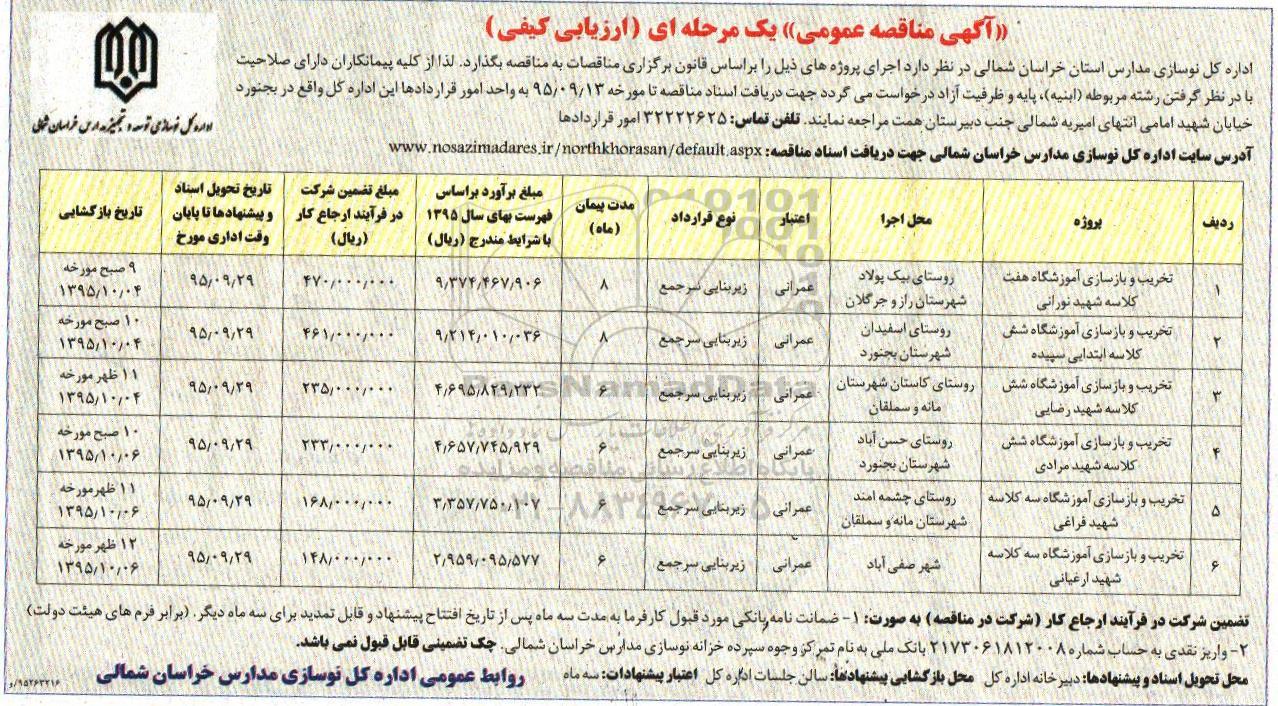 «آگهی مناقصه عمومی» یک مرحله ای (ارزیابی کیفی)
اداره کل نوسازی توسعه و تجهیز مدارس خراسان شمالی
اداره کل نوسازی مدارس استان خراسان شمالی در نظر دارد اجرای پروژه های ذیل را براساس قانون برگزاری مناقصات به مناقصه بگذارد. لذا از کلیه پیمانکاران دارای صلاحیت
با در نظر گرفتن رشته مربوطه (ابنیه)، پایه و ظرفیت آزاد درخواست می گردد جهت دریافت اسناد مناقصه تا مورخه ۹۵/۰۹/۱۳ به واحد امور قراردادها این اداره کل واقع در بجنورد
خیابان شهید امامی انتهای امیریه شمالی جنب دبیرستان همت مراجعه نمایند. تلفن تماس: ۳۲۲۲۲۶۲۵ امور قراردادها
آدرس سایت اداره کل نوسازی مدارس خراسان شمالی جهت دریافت اسناد مناقصه: www.nosazimadares.ir/northkhorasan/default.aspx
ردیف پروژه محل اجرا اعتبار نوع قرارداد مدت پیمان (ماه) مبلغ برآورد براساس فهرست بهای سال ۱۳۹۵ با شرایط مندرج (ریال) مبلغ تضمین شرکت در فرآیند ارجاع کار (ریال) تاریخ تحویل اسناد و پیشنهادها تا پایان وقت اداری مورخ تاریخ بازگشایی
۱ تخریب و بازسازی آموزشگاه هفت کلاسه شهید نورانی روستای بیک پولاد شهرستان راز و جرگلان عمرانی زیربنایی سرجمع ۸ ۹٫۳۷۴٫۴۶۷٫۹۰۶ ۴۷۰٫۰۰۰٫۰۰۰ ۹۵٫۰۹٫۲۹ ۹ صبح مورخه ۱۳۹۵٫۱۰٫۰۴
۲ تخریب و بازسازی آموزشگاه شش کلاسه ابتدایی سپیده روستای اسفیدان شهرستان بجنورد عمرانی زیربنایی سرجمع ۸ ۹٫۲۱۴٫۰۱۰٫۰۳۶ ۴۶۱٫۰۰۰٫۰۰۰ ۹۵٫۰۹٫۲۹ ۱۰ صبح مورخه ۱۳۹۵٫۱۰٫۰۴
۳ تخریب و بازسازی آموزشگاه شش کلاسه شهید رضایی روستای کاستان شهرستان مانه و سملقان عمرانی زیربنایی سرجمع ۶ ۴٫۶۹۵٫۸۲۹٫۲۳۲ ۲۳۵٫۰۰۰٫۰۰۰ ۹۵٫۰۹٫۲۹ ۱۱ ظهر مورخه ۱۳۹۵٫۱۰٫۰۴
۴ تخریب و بازسازی آموزشگاه شش کلاسه شهید مرادی روستای حسن آباد شهرستان بجنورد عمرانی زیربنایی سرجمع ۶ ۴٫۶۵۷٫۷۴۵٫۹۲۹ ۲۳۳٫۰۰۰٫۰۰۰ ۹۵٫۰۹٫۲۹ ۱۰ صبح مورخه ۱۳۹۵٫۱۰٫۰۶
۵ تخریب و بازسازی آموزشگاه سه کلاسه شهید فراغی روستای چشمه امند شهرستان مانه و سملقان عمرانی زیربنایی سرجمع ۶ ۳٫۳۵۷٫۷۵۰٫۱۰۷ ۱۶۸٫۰۰۰٫۰۰۰ ۹۵٫۰۹٫۲۹ ۱۱ ظهر مورخه ۱۳۹۵٫۱۰٫۰۶
۶ تخریب و بازسازی آموزشگاه سه کلاسه شهید ارغیانی شهر صفی آباد عمرانی زیربنایی سرجمع ۶ ۲٫۹۵۹٫۰۹۵٫۵۷۷ ۱۴۸٫۰۰۰٫۰۰۰ ۹۵٫۰۹٫۲۹ ۱۲ ظهر مورخه ۱۳۹۵٫۱۰٫۰۶
ParsNamadData
پایگاه اطلاع رسانی مناقصه و مزایده
تضمین شرکت در فرآیند ارجاع کار (شرکت در مناقصه) به صورت: ۱- ضمانت نامه بانکی مورد قبول کارفرما به مدت سه ماه پس از تاریخ افتتاح پیشنهاد و قابل تمدید برای سه ماه دیگر. (برابر فرم های هیئت دولت)
۲- واریز نقدی به حساب شماره ۲۱۷۳۰۶۱۸۱۲۰۰۸ بانک ملی به نام تمرکز وجوه سپرده خزانه نوسازی مدارس خراسان شمالی. چک تضمینی قابل قبول نمی باشد.
محل تحویل اسناد و پیشنهادها: دبیرخانه اداره کل محل بازگشایی پیشنهادها: سالن جلسات اداره کل اعتبار پیشنهادات: سه ماه
روابط عمومی اداره کل نوسازی مدارس خراسان شمالی
۹۵۲۶۳۲۱۶/و